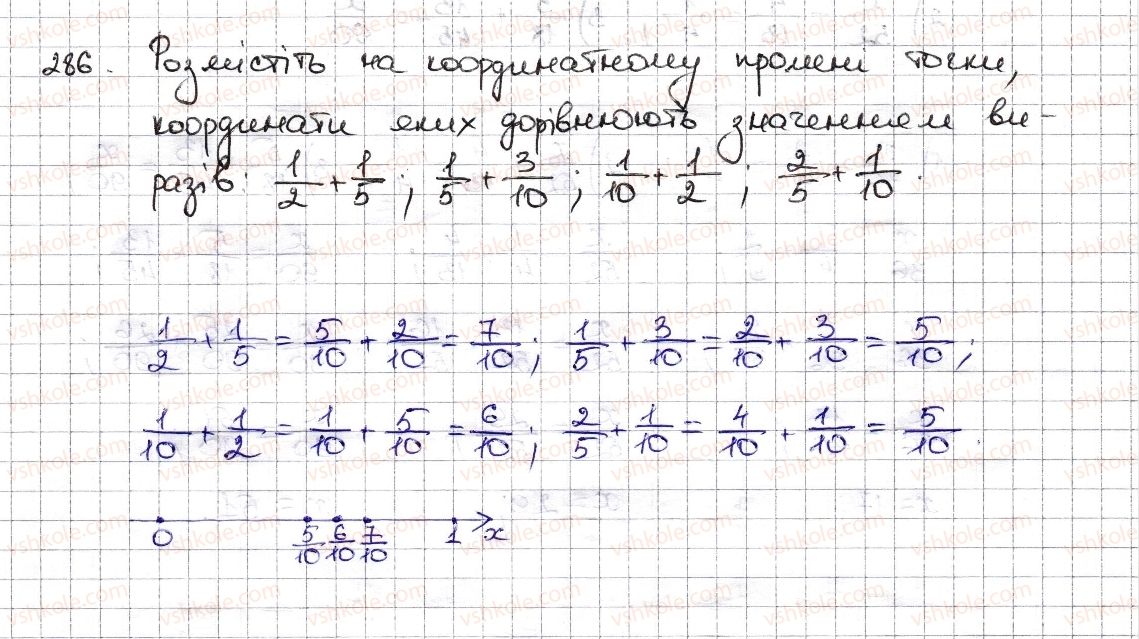 286. Розмістіть на координатному промені точки,
координати яких дорівнюють значенням ви-
разів: 1/2 + 1/5; 1/5 + 3/10; 1/10 + 1/2; 2/5 + 1/10.
1/2 + 1/5 = 5/10 + 2/10 = 7/10; 1/5 + 3/10 = 2/10 + 3/10 = 5/10;
1/10 + 1/2 = 1/10 + 5/10 = 6/10; 2/5 + 1/10 = 4/10 + 1/10 = 5/10.
0 5/10 6/10 7/10 1 x